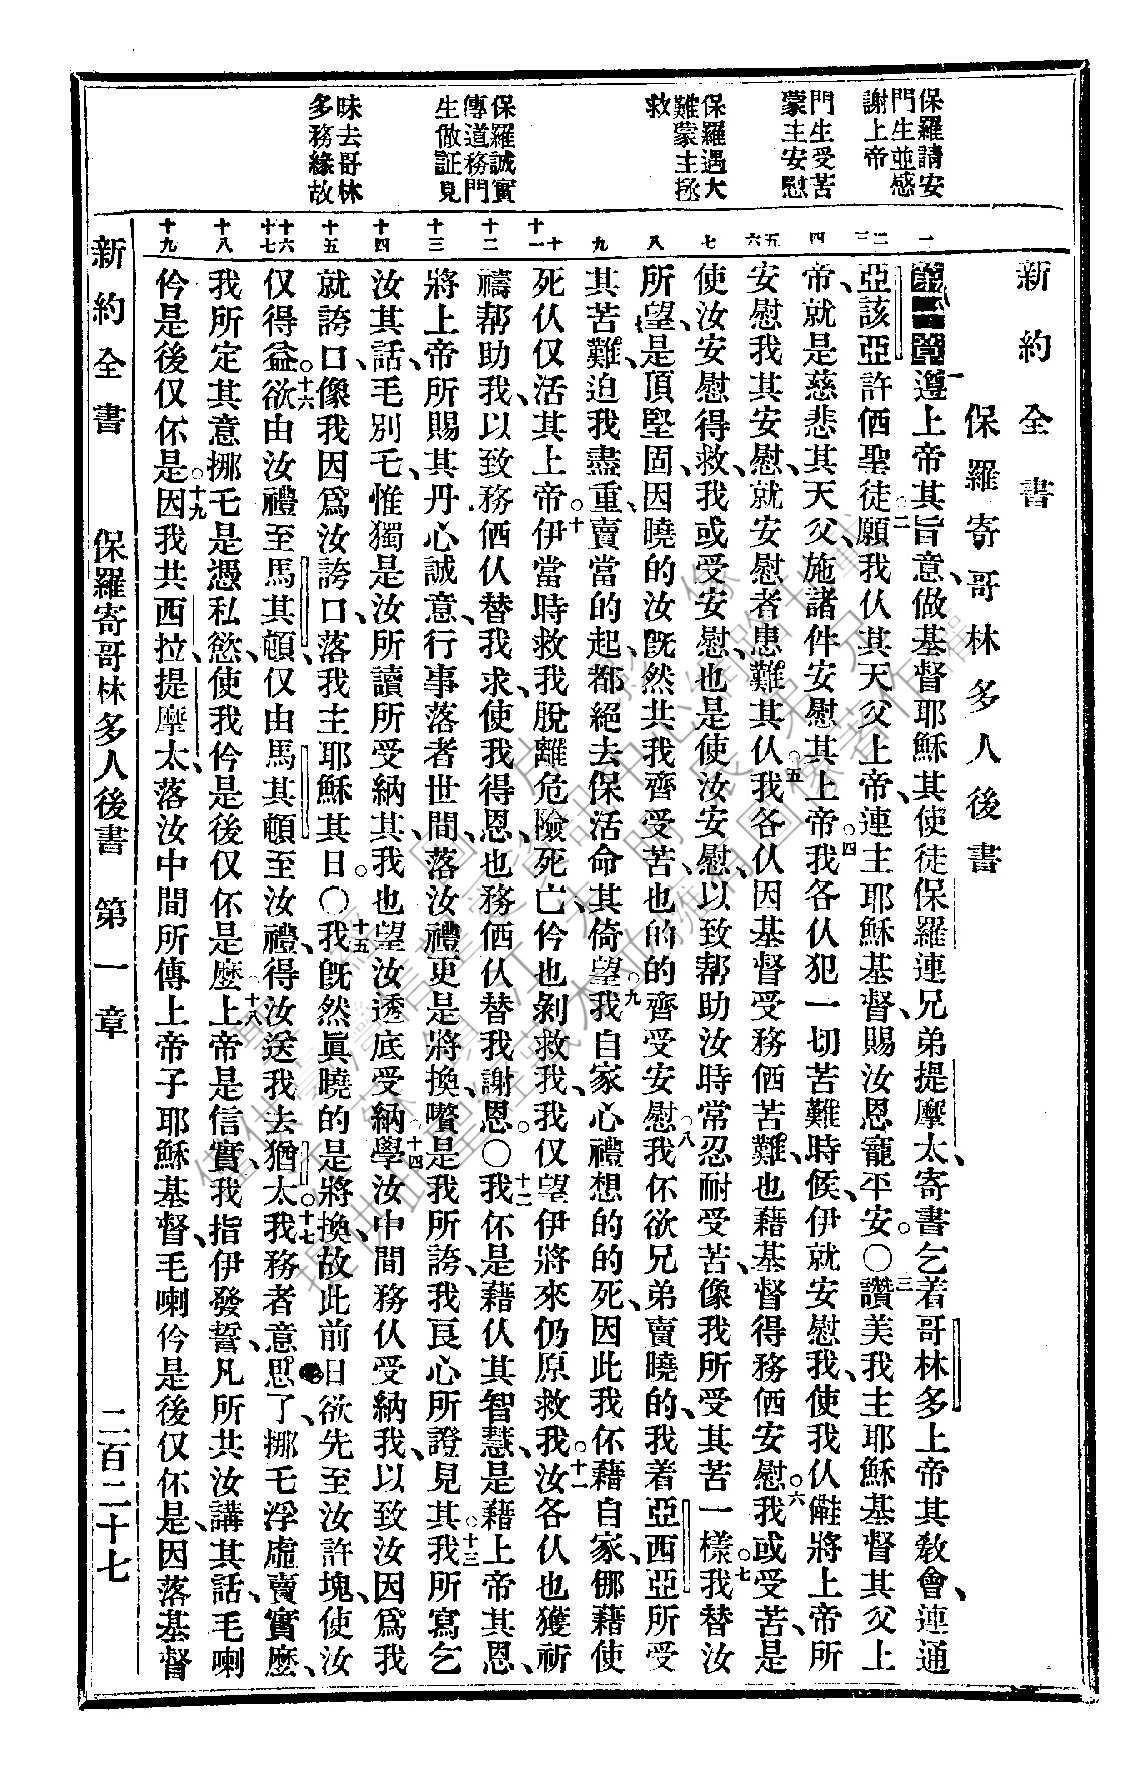 保羅請安
門生並感
謝上帝
門生受苦
蒙主安慰
保羅遇大
難蒙主拯
救
保羅誠實
傳道務門
生做証見
昧去哥林
多務緣故
一
二
三
四
五
六
七
八
九
十
十一
十二
十三
十四
十五
十六
十七
十八
十九
新約全書
保羅寄哥林多人後書
第一章一遵上帝其旨意、做基督耶穌其使徒保羅連兄弟提摩太、寄書乞着哥林多上帝其教會、連通
亞該亞許価聖徒。二願我仈其天父上帝、連主耶穌基督、賜汝恩寵平安。〇三讚美我主耶穌基督其父上
帝、就是慈悲其天父、施諸件安慰其上帝。四我各仈犯一切苦難時候、伊就安慰我、使我仈䧹將上帝所
安慰我其安慰、就安慰者患難其仈。五我各仈因基督受務価苦難、也藉基督得務価安慰。六我或受苦、是
使汝安慰得救、我或受安慰、也是使汝安慰、以致幫助汝時常忍耐受苦、像我所受其苦一樣。七我替汝
所望、是頂堅固、因曉的汝旣然共我齊受苦、也的的齊受安慰。八我伓欲兄弟賣曉的、我着亞西亞所受
其苦難、迫我盡重、賣當的起、都絕去保活命其倚望。九我自家心禮想的的死、因此我伓藉自家、㑚藉使
死仈仅活其上帝。十伊當時救我脫離危險死亡、仱也剝救我、我仅望伊將來仍原救我。十一汝各仈也獲祈
禱幫助我、以致務価仈替我求、使我得恩、也務価仈替我謝恩。〇十二我伓是藉仈其智慧、是藉上帝其恩、
將上帝所賜其丹心誠意、行事落者世間、落汝禮更是將換、嚽是我所誇、我良心所證見其。十三我所寫乞
汝其話、毛別乇、惟獨是汝所讀所受納其、我也望汝透底受納。十四學汝中間務仈受納我、以致汝因爲我
就誇口、像我因爲汝誇口、落我主耶穌其日〇十五我旣然眞曉的是將換、故此前日欲先至汝許塊、使汝
仅得益。十六欲由汝禮至馬其頓、仅由馬其頓至汝禮、得汝送我去猶太。十七我務者意思了、挪乇浮虛賣實麼、
我所定其意挪乇是憑私慾、使我仱是後仅伓是麼。十八上帝是信實、我指伊發誓、凡所共汝講其話、毛喇
仱是後仅伓是。十九因我共西拉、提摩太、落汝中間所傳上帝子耶穌基督、毛喇仱是後仅伓是、因落基督
新約全書 保羅寄哥林多人後書 第一章 二百二十七